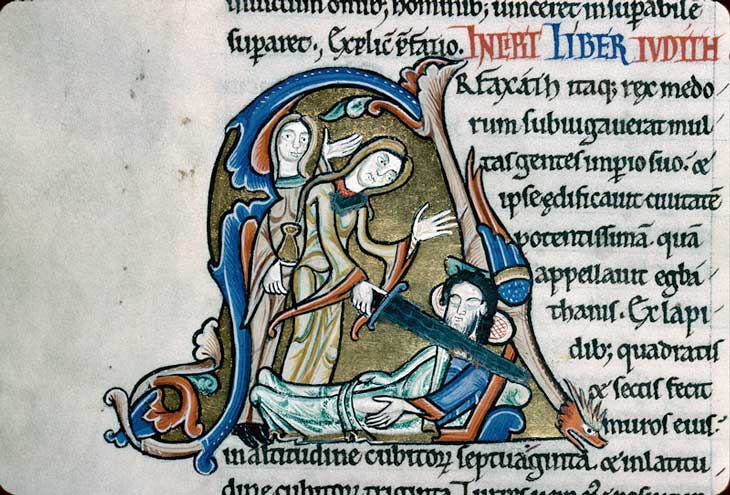 inuictum omīb; hominib; uinceret insupabile
suparet., Explic̄ p̄fatio. INCIPT LIBER IVDITH
ARfaxath itaq; rex medo
rum subiugauerat mul
tas gentes imperio suo. &
ipse ędificauit ciuitatē
potentissimā. quā
appellauit egba
thanis. Ex lapi
dib; quadratis
& sectis fecit
muros eius.
in altitudine cubitoꝝ septuaginta. & in latitu
dine cubitoꝝ triginta. Turres